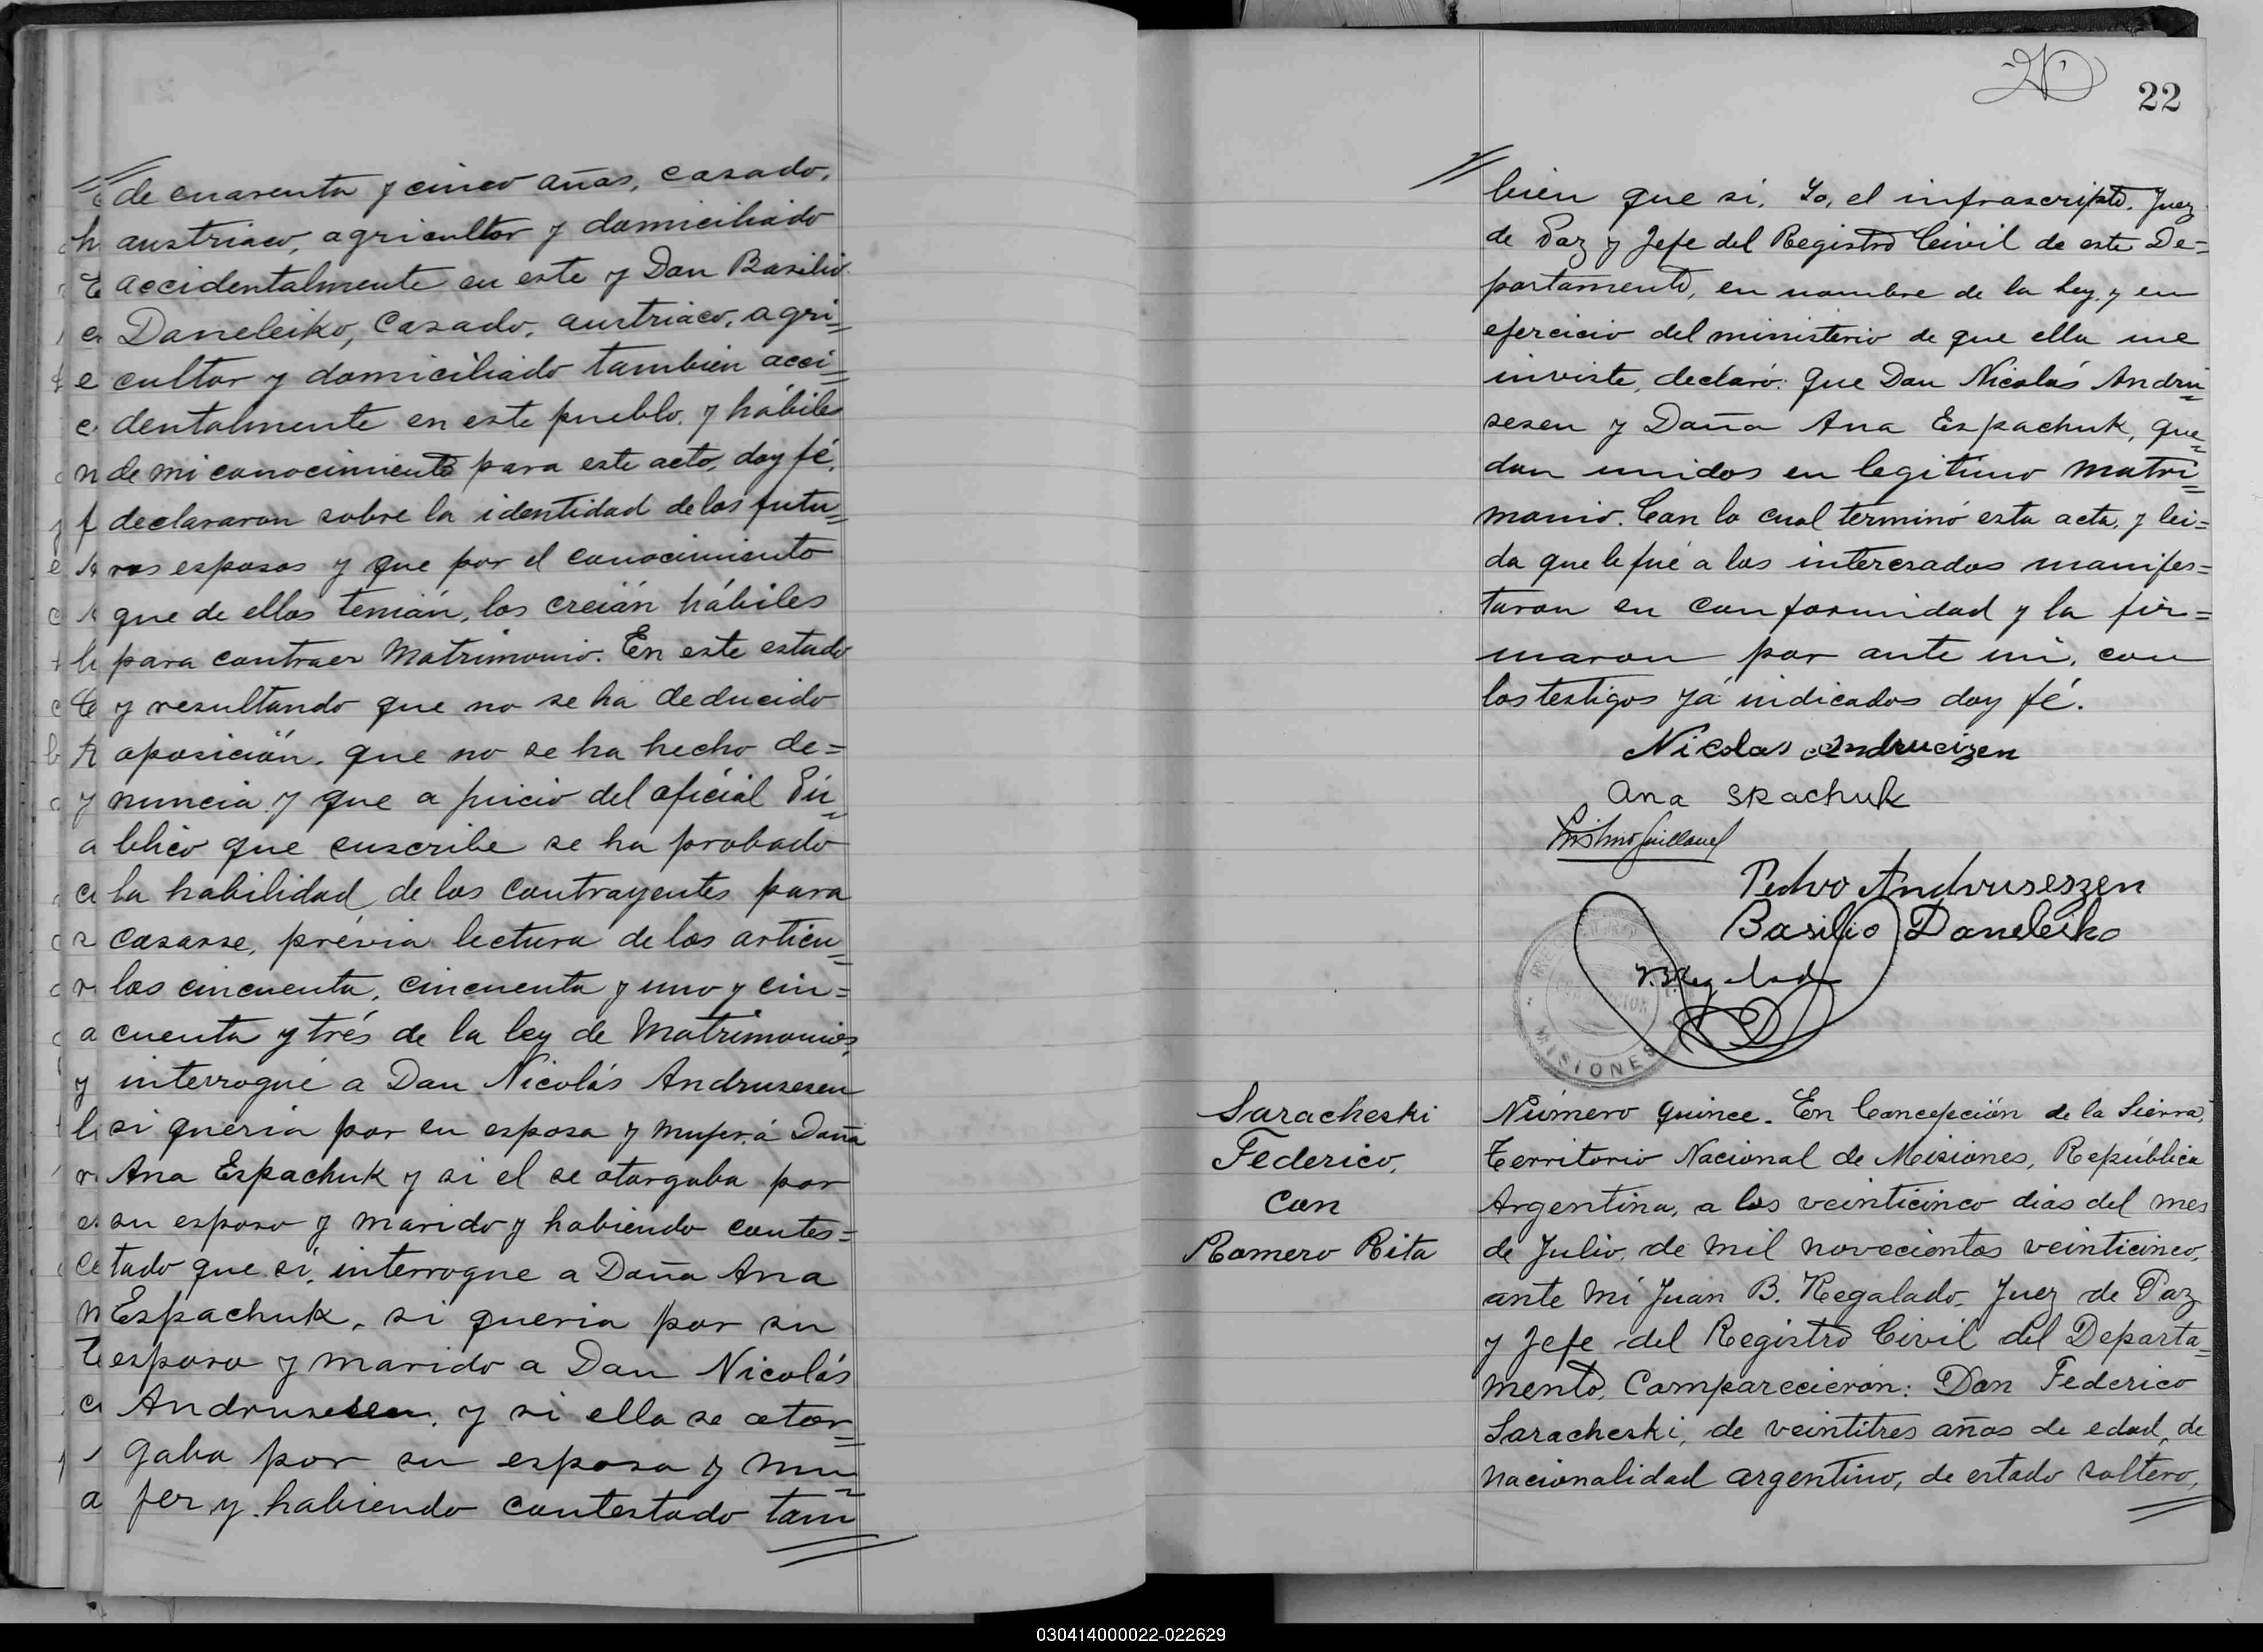 de cuarenta y cinco años, casado,
austriaco, agricultor y domiciliado
accidentalmente en este y Don Basilio
Daneleiko, casado, austriaco, agri=
cultor y domiciliado tambien acci=
dentalmente en este pueblo, y hábiles
de mi conocimiento para este acto, doy fé,
declararon sobre la identidad de los futu=
ros esposos y que por el conocimiento
que de ellos tenián, los creián hábiles
para contraer Matrimonio. En este estado
y resultando que no se ha deducido
oposición, que no se ha hecho de=
nuncia y que a juicio del oficial Pú=
blico que suscribe se ha probado
la habilidad de los contrayentes para
casarse, prévia lectura de los articu=
los cincuenta, cincuenta y uno y cin=
cuenta y trés de la ley de Matrimonios,
y interrogué a Don Nicolás Andrusesen
si queria por su esposa y mujer á Doña
Ana Espachuk y si el se otorgaba por
su esposo y marido y habiendo contes=
tado que sí, interrogue a Doña Ana
Espachuk, si queria por su
esposo y marido a Don Nicolás
Andrusesen, y si ella se otor=
gaba por su esposa y mu=
jer y habiendo contestado tam
22
bien que si, Yo, el infrascripto, Juez
de Paz y Jefe del Registro Civil de este De=
partamento, en nombre de la ley y en
ejercicio del ministerio de que ella me
inviste, declaró: que Don Nicolás Andru=
sesen y Doña Ana Espachuk, que=
dan unidos en legitimo matri=
monio. Con lo cual terminó esta acta, y lei=
da que le fué a los interesados manifes=
taron su conformidad y la fir=
maron por ante mi, con
los testigos yá indicados doy fé.
Nicolas Andrucizen
Ana SPachuk
Pedro Andruseszen
Basilio Daneleiko
J.B.Regalado
MISIONES
Saracheski
Federico,
con
Romero Rita
Número quince. En Concepción de la Sierra,
Territorio Nacional de Misiones, República
Argentina, a los veinticinco dias del mes
de Julio, de mil novecientos veinticinco,
ante mí Juan B. Regalado, Juez de Paz
y Jefe del Registro Civil del Departa=
mento, Comparecieron: Don Federico
Saracheski, de veintitres años de edad, de
nacionalidad argentino, de estado soltero,
030414000022-022629